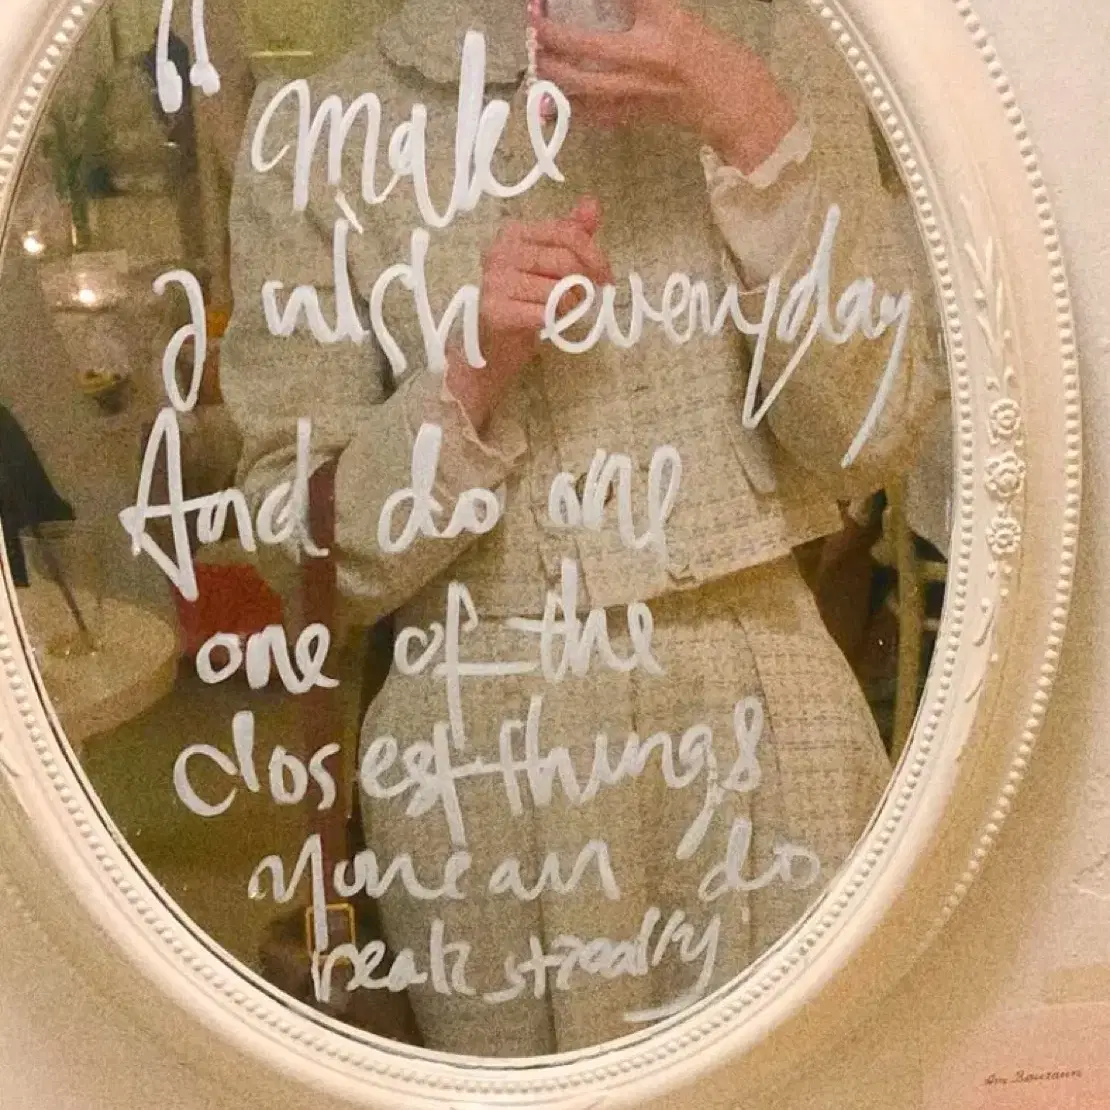 "
make
a wish everyday
And do one
one of the
closest things
You can do